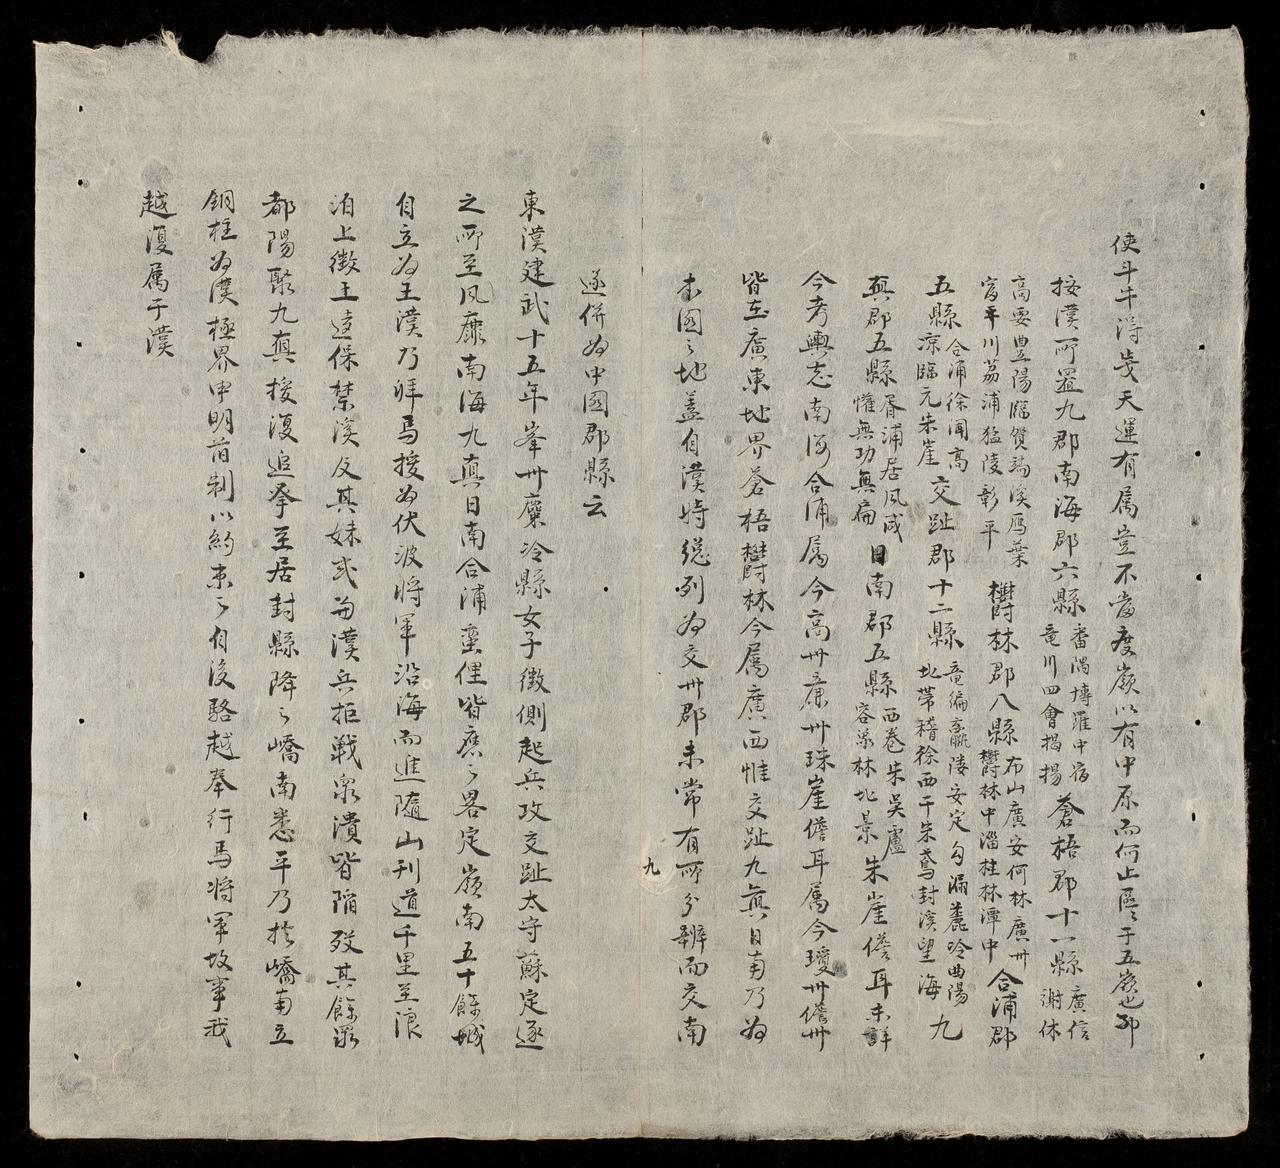 使斗牛浔歩天運有属豈不當度嶺以有中原而何止區〻于五嶺也耶
按漢所置九郡南海郡六縣番隅博羅中宿竜川四會揭揚蒼梧郡十一縣廣信謝休
高要豊陽臨賀端溪馮葉富平川荔浦猛陵彰平欝林郡八縣布山廣安何林廣卅欝林中溜桂林潭中合浦郡
五縣合浦徐聞高凉臨元朱崖交趾郡十二縣竜编羸𨻻安定勾漏麊冷曲陽北帶稽徐西于朱鳶封溪望海九
眞郡五縣胥浦居風咸懽無功無扁日南郡五縣西卷朱吳盧容象林北景朱崖儋耳未詳
今考輿志南海合浦属今高卅廉卅珠崖儋耳属今瓊卅儋卅
皆在廣東地界蒼梧欝林今属廣西惟交趾九眞日南乃為
本國〻地蓋自漢時總列為交卅郡未常有所分辨而交南
遂併為中國郡縣云
九
東漢建武十五年峯卅麋冷縣女子徵側起兵攻交趾太守蘇定逐
之所至風靡南海九真日南合浦蛮俚皆應〻畧定嶺南五十餘城
自立為王漢乃拜馬援為伏波將軍沿海而進隨山刊道千里至浪
泊上徵王遠保禁溪及其妹弍與漢兵拒戦衆潰皆陷歿其餘衆
都陽聚九真援復追擊至居封縣降〻嶠南悉平乃於嶠南立
銅柱為漢極界申明前制以約束〻自後駱越奉行馬將軍故事我
越復属于漢